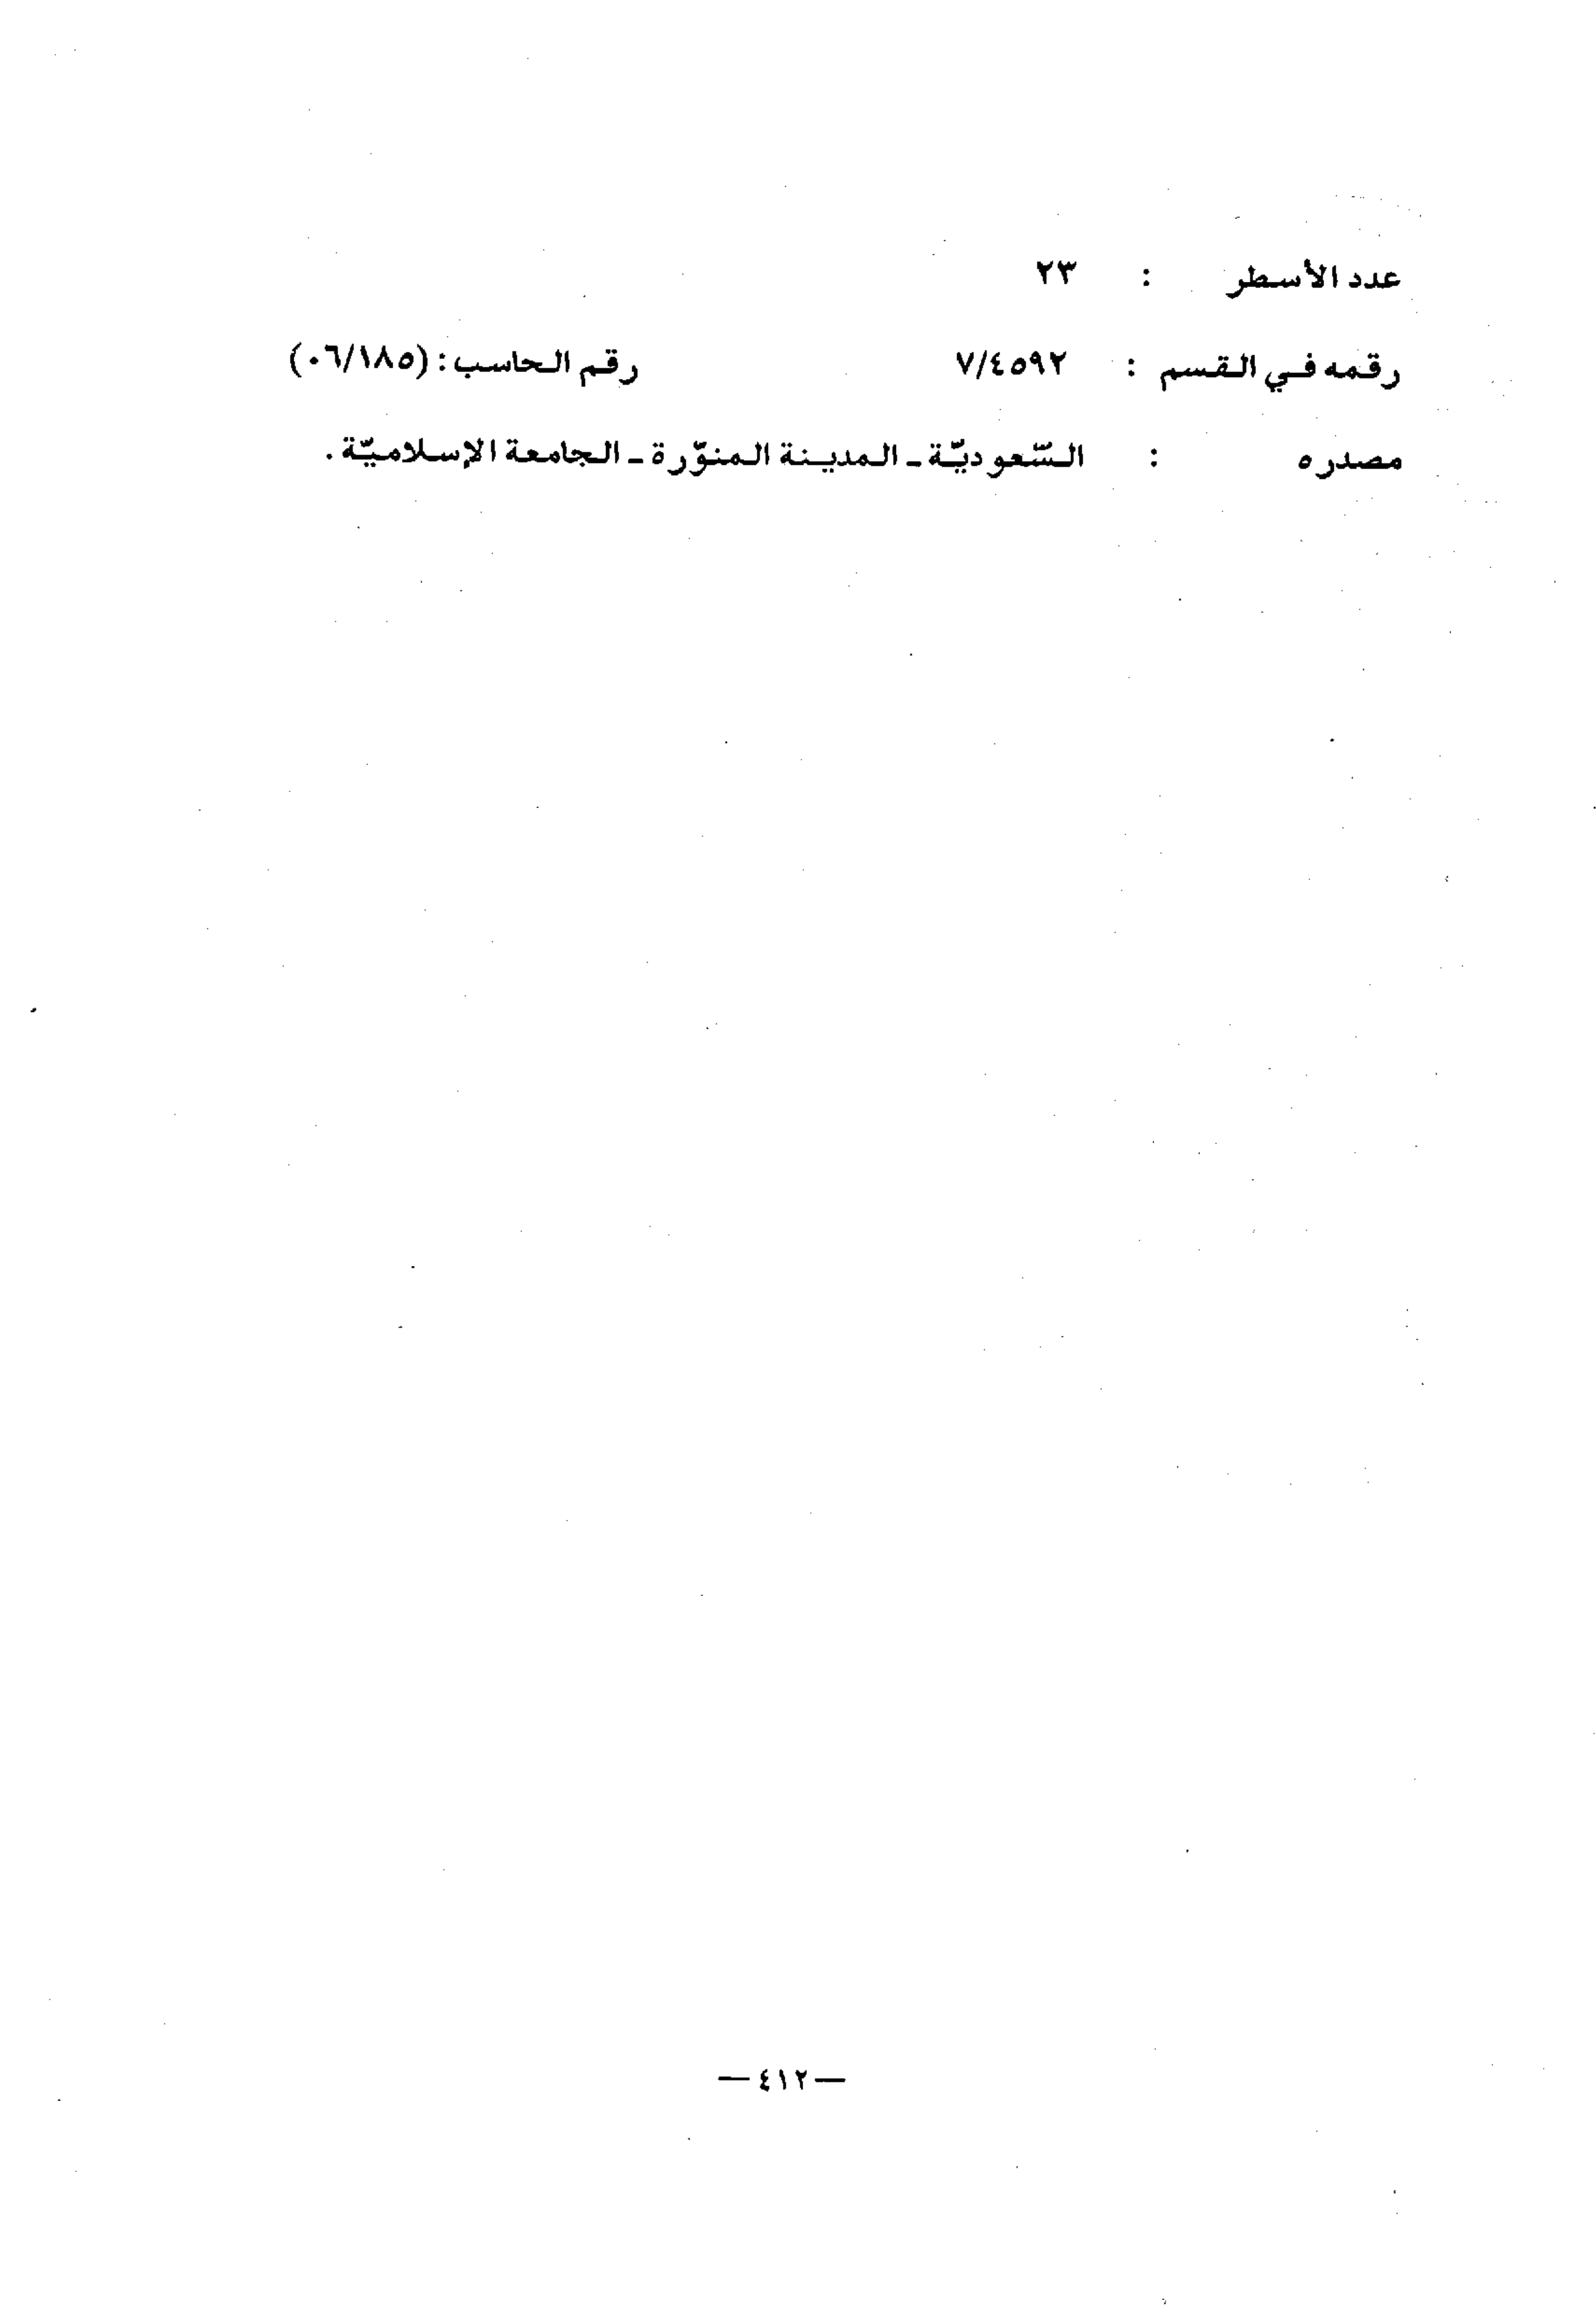 عدد الأسطر : ٢٣
رقمه في القسم : ٧/٤٥٩٢ رقم الحاسب : (٠٦/١٨٥)
مصدره : السّعوديّة ـ المدينة المنوّرة ـ الجامعة الإسلاميّة .
— ٤١٢ —